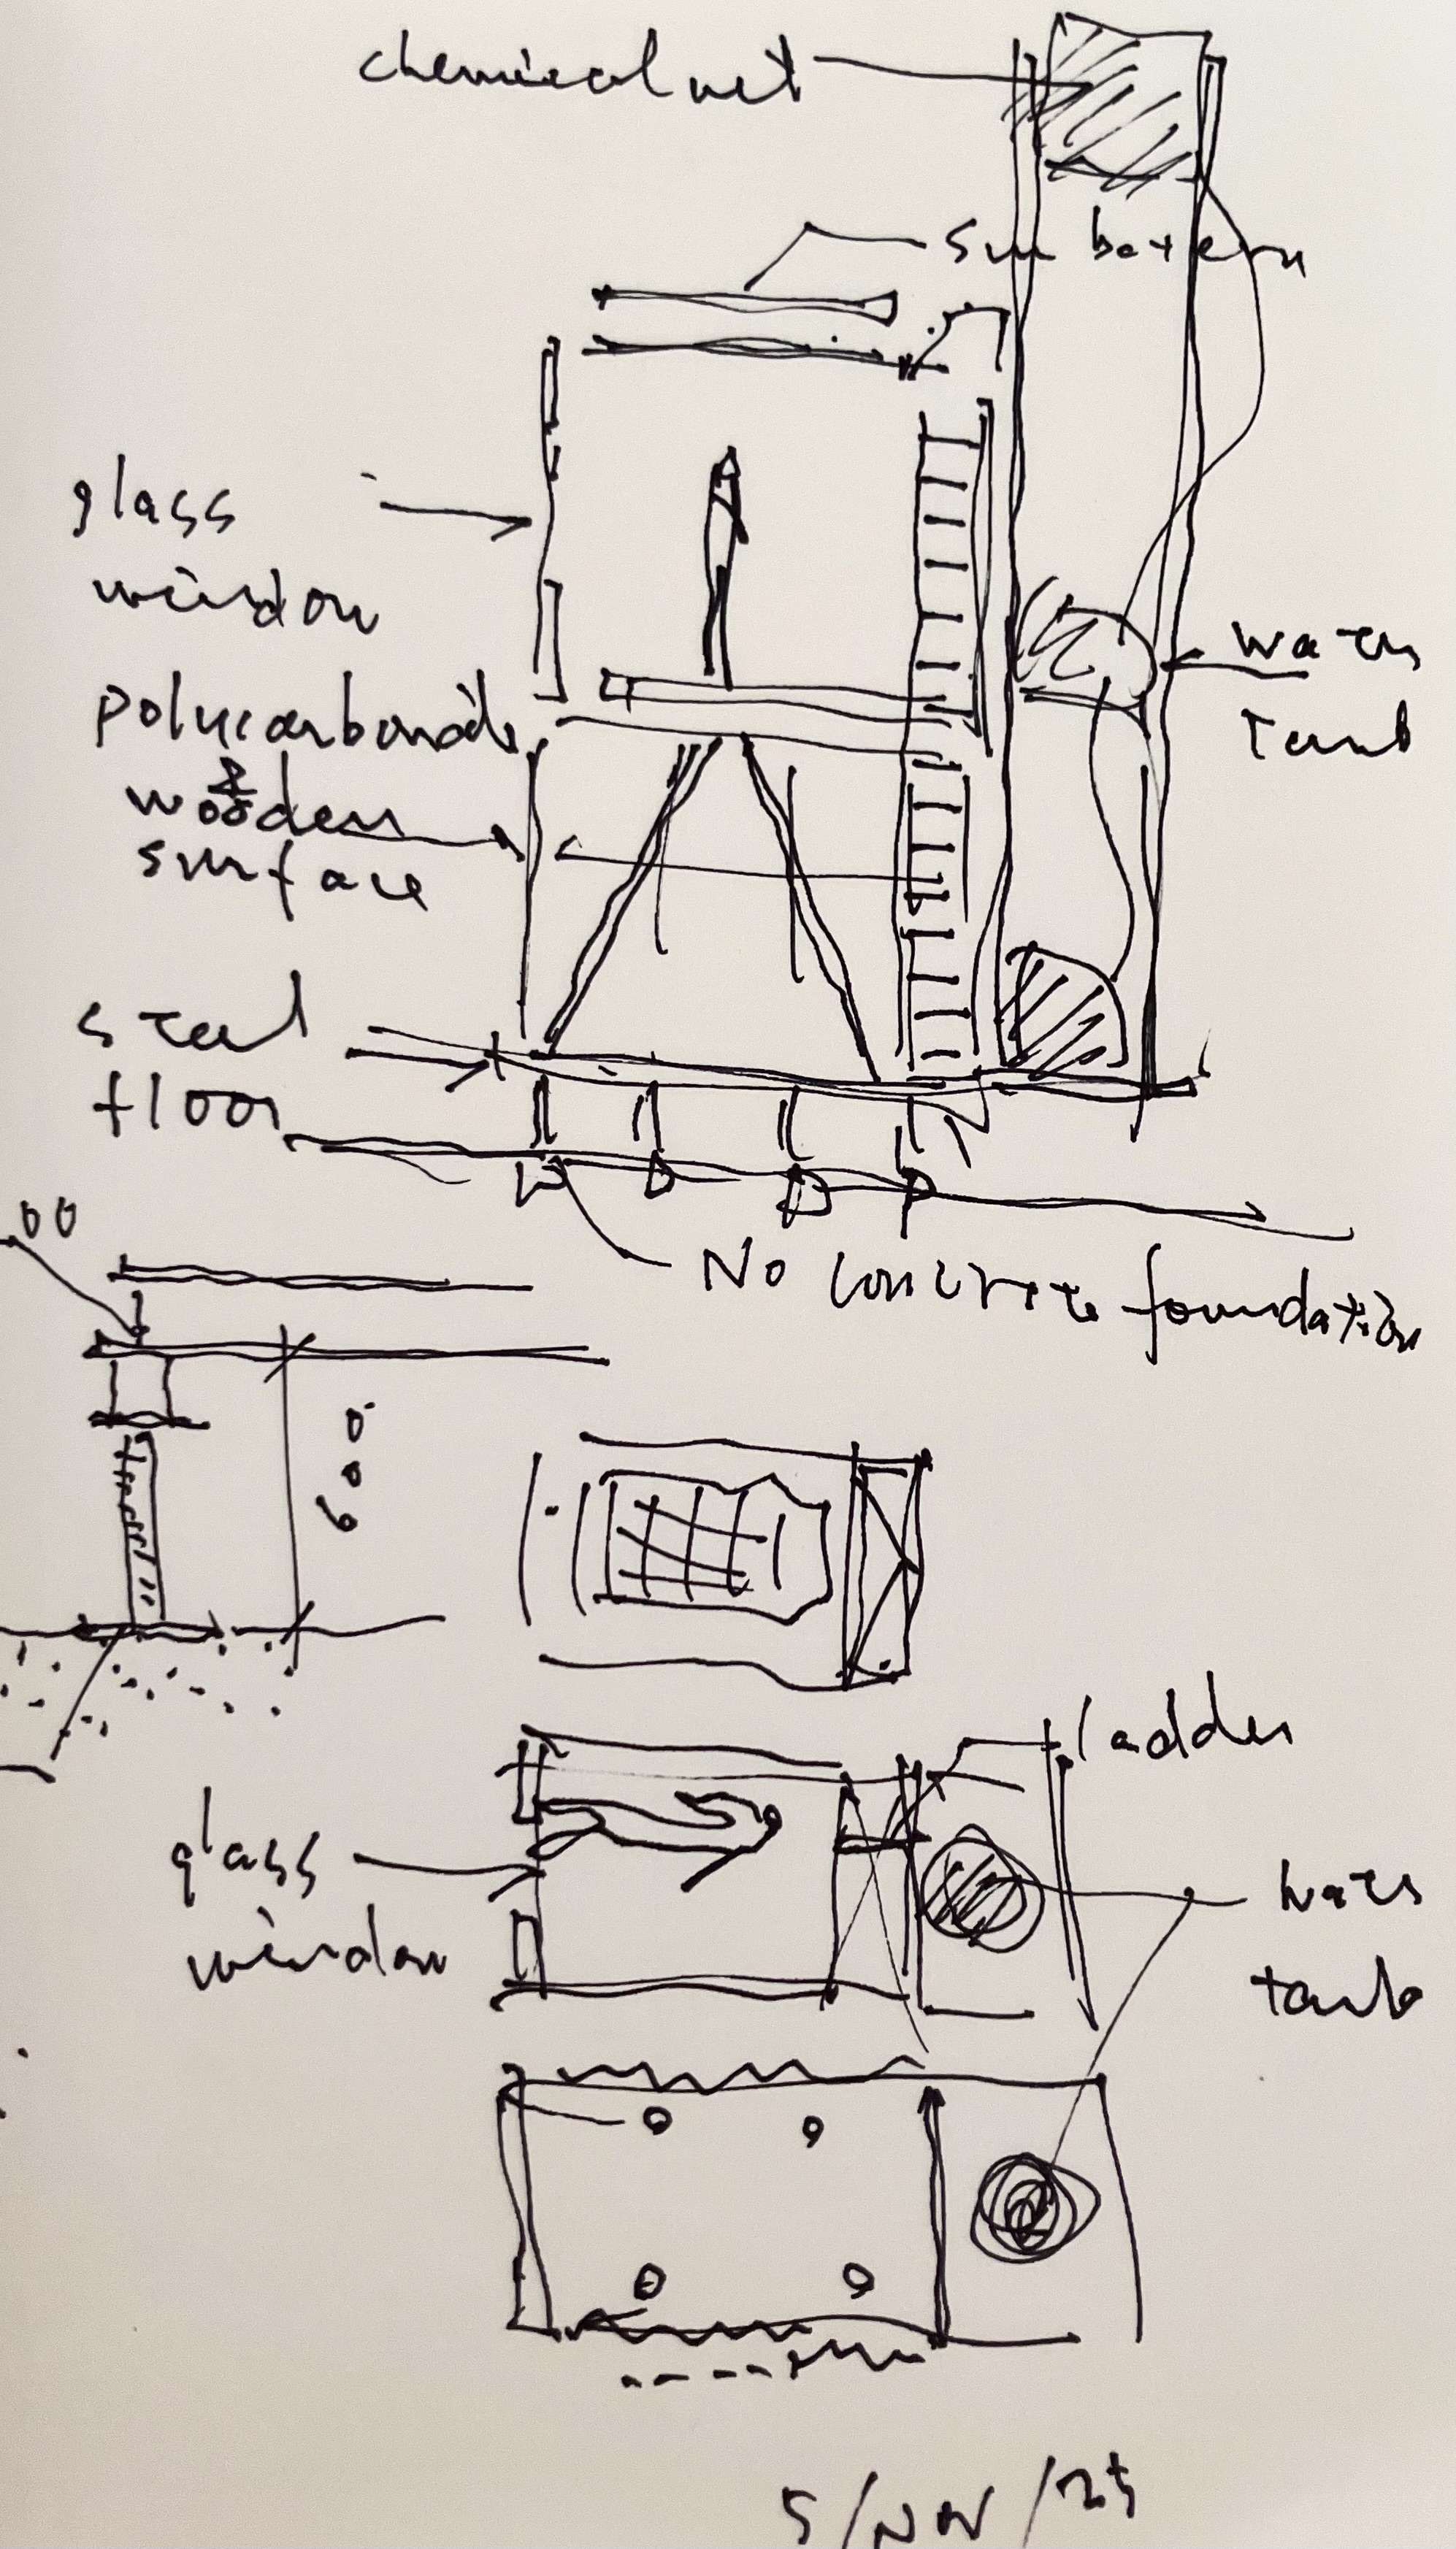 chemical net
sun batern
glass
window
polycarbonate
&
wooden
surface
water
tank
steel
floor
No concrete foundation
00
600
ladder
glass
window
water
tank
5/NOV/25